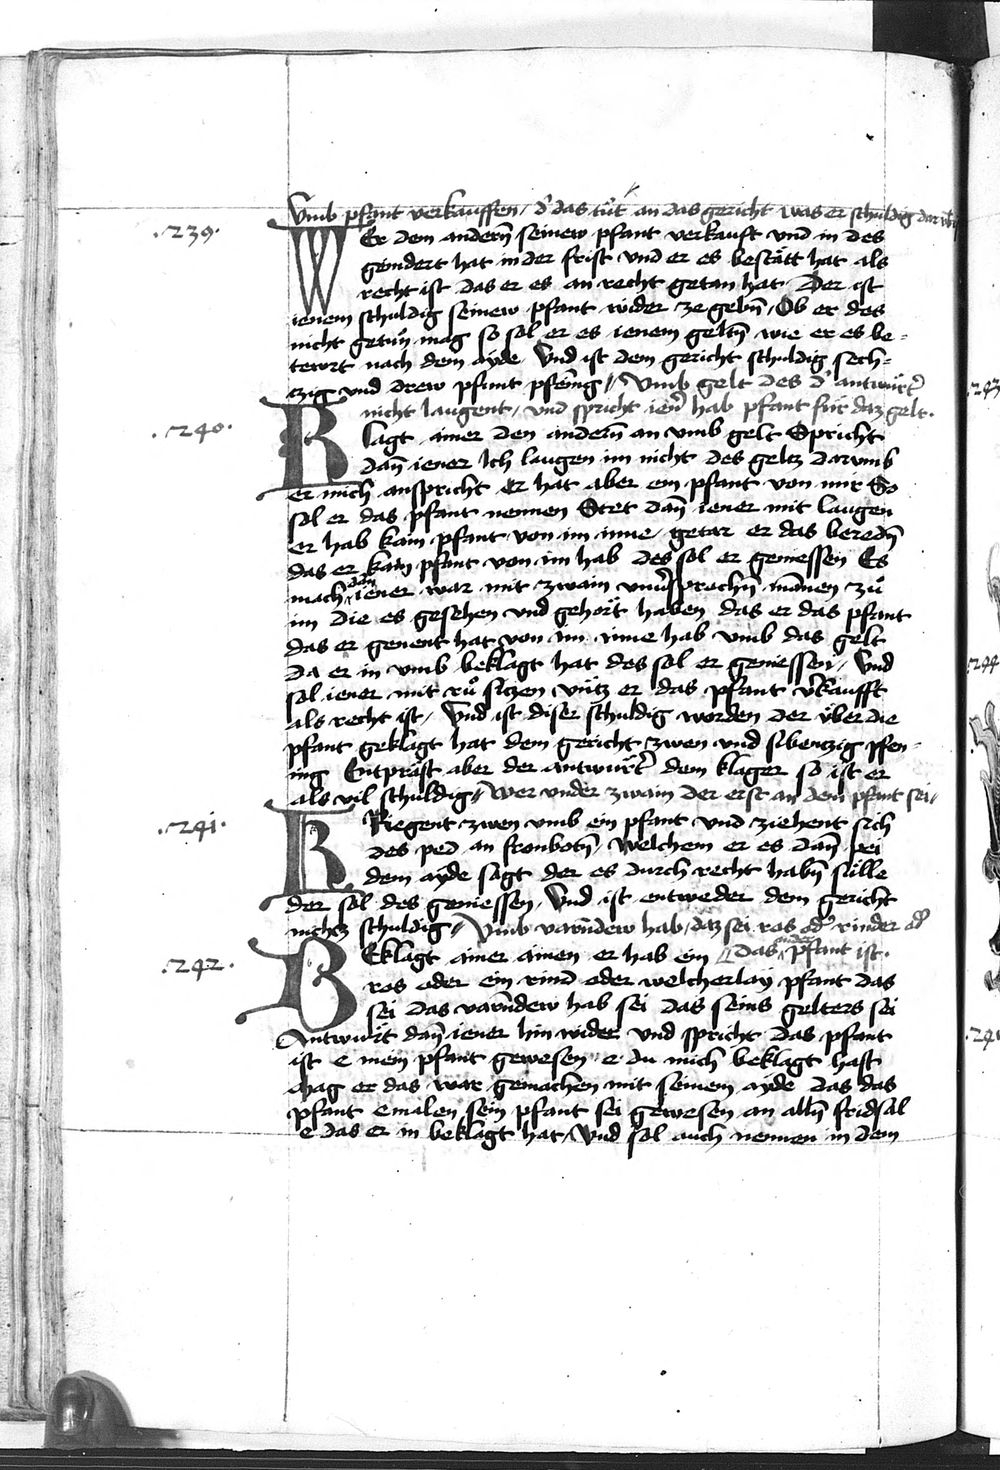 Vmb pfant verkauffen / d' das tůt an das gericht was er schuldig dar vmb
.239. WEr dem andern̄ seinew pfant verkauft vnd in des
gēndert hat in der frist vnd er es bestätt hat als
recht ist das er es an recht getan hat Der ist
ienem schuldig seinew pfant wider ze gebn̄ / Ob er des
nicht getůn mag so sol er es ienem geltn̄ wie er es be-
tewrt nach dem ayde Vnd ist dem gericht schuldig sech-
czig vnd drew pfunt pfēnig // Vmb gelt des d' antwürt'
nicht laugent / vnd spricht ien' hab pfant für daz gelt.
.240. Klagt ainer den andern̄ an vmb gelt Spricht
dan̄ iener Ich laugen im nicht des geltz darvmb
er mich anspricht er hat aber ein pfant von mir So
sol er das pfant nennen Stet dan̄ iener mit laugen
er hab kain pfant von im inne / getar er das beredn̄
das er kain pfant von im hab des sol er geniessen Es
mach dan iener war mit zwain vnu'sprochn̄ mannen zů
im die es gesehen vnd gehört haben das er das pfant
das er genent hat von im inne hab vmb das gelt
da er in vmb beklagt hat des sol er geniessen / Vnd
sol iener mit rů siczen vntz er das pfant v'kaufft
als recht ist / Vnd ist diser schuldig worden der über die
pfant geklagt hat dem gericht zwen vnd sibenczig pfen-
ing Entpräst aber der antwürt' dem klager so ist er
als vil schuldig // Wer vnder zwain der erst an dem pfant sei /
.241. KRiegent zwen vmb ein pfant vnd ziehent sich
des ped an fronbotn̄ / Welchem er es dan̄ pei
dem ayde sagt der es durch recht habn̄ sülle
der sol des geniessen / Vnd ist entweder dem gericht
nichcz schuldig // Vmb varn̄dew hab / daz sei ros od' rinder od'
.242. BEklagt ainer ainen er hab ein / Das ander pfant ist.
ros oder ein rind oder welcherlay pfant das
sei das varn̄dew hab sei das seins gelters sei
Antwürt dan̄ iener hin wider vnd spricht das pfant
ist e mein pfant gewesen / e du mich beklagt hast
mag er das war gemachen mit seinem ayde das das
pfant emalen sein pfant sei gewesen an alln̄ fridsal
e das er in beklagt hat / Vnd sol auch nennen in dem